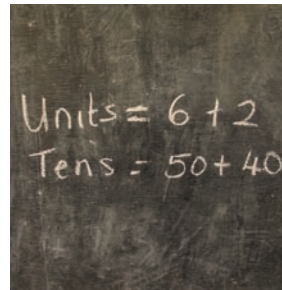 Units = 6 + 2
Tens = 50 + 40